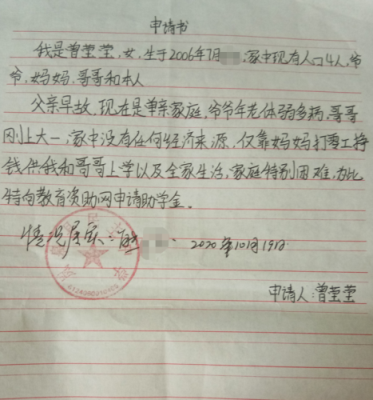 申请书
我是曾莹莹,女,生于2006年7月 ,家中现有人口4人,爷
爷、妈妈、哥哥和本人
父亲早故,现在是单亲家庭,爷爷年老体弱多病,哥哥
刚上大一,家中没有任何经济来源,仅靠妈妈打零工挣
钱供我和哥哥上学以及全家生活,家庭特别困难,为此
特向教育资助网申请助学金。
情况属实
2020年10月19日
申请人:曾莹莹